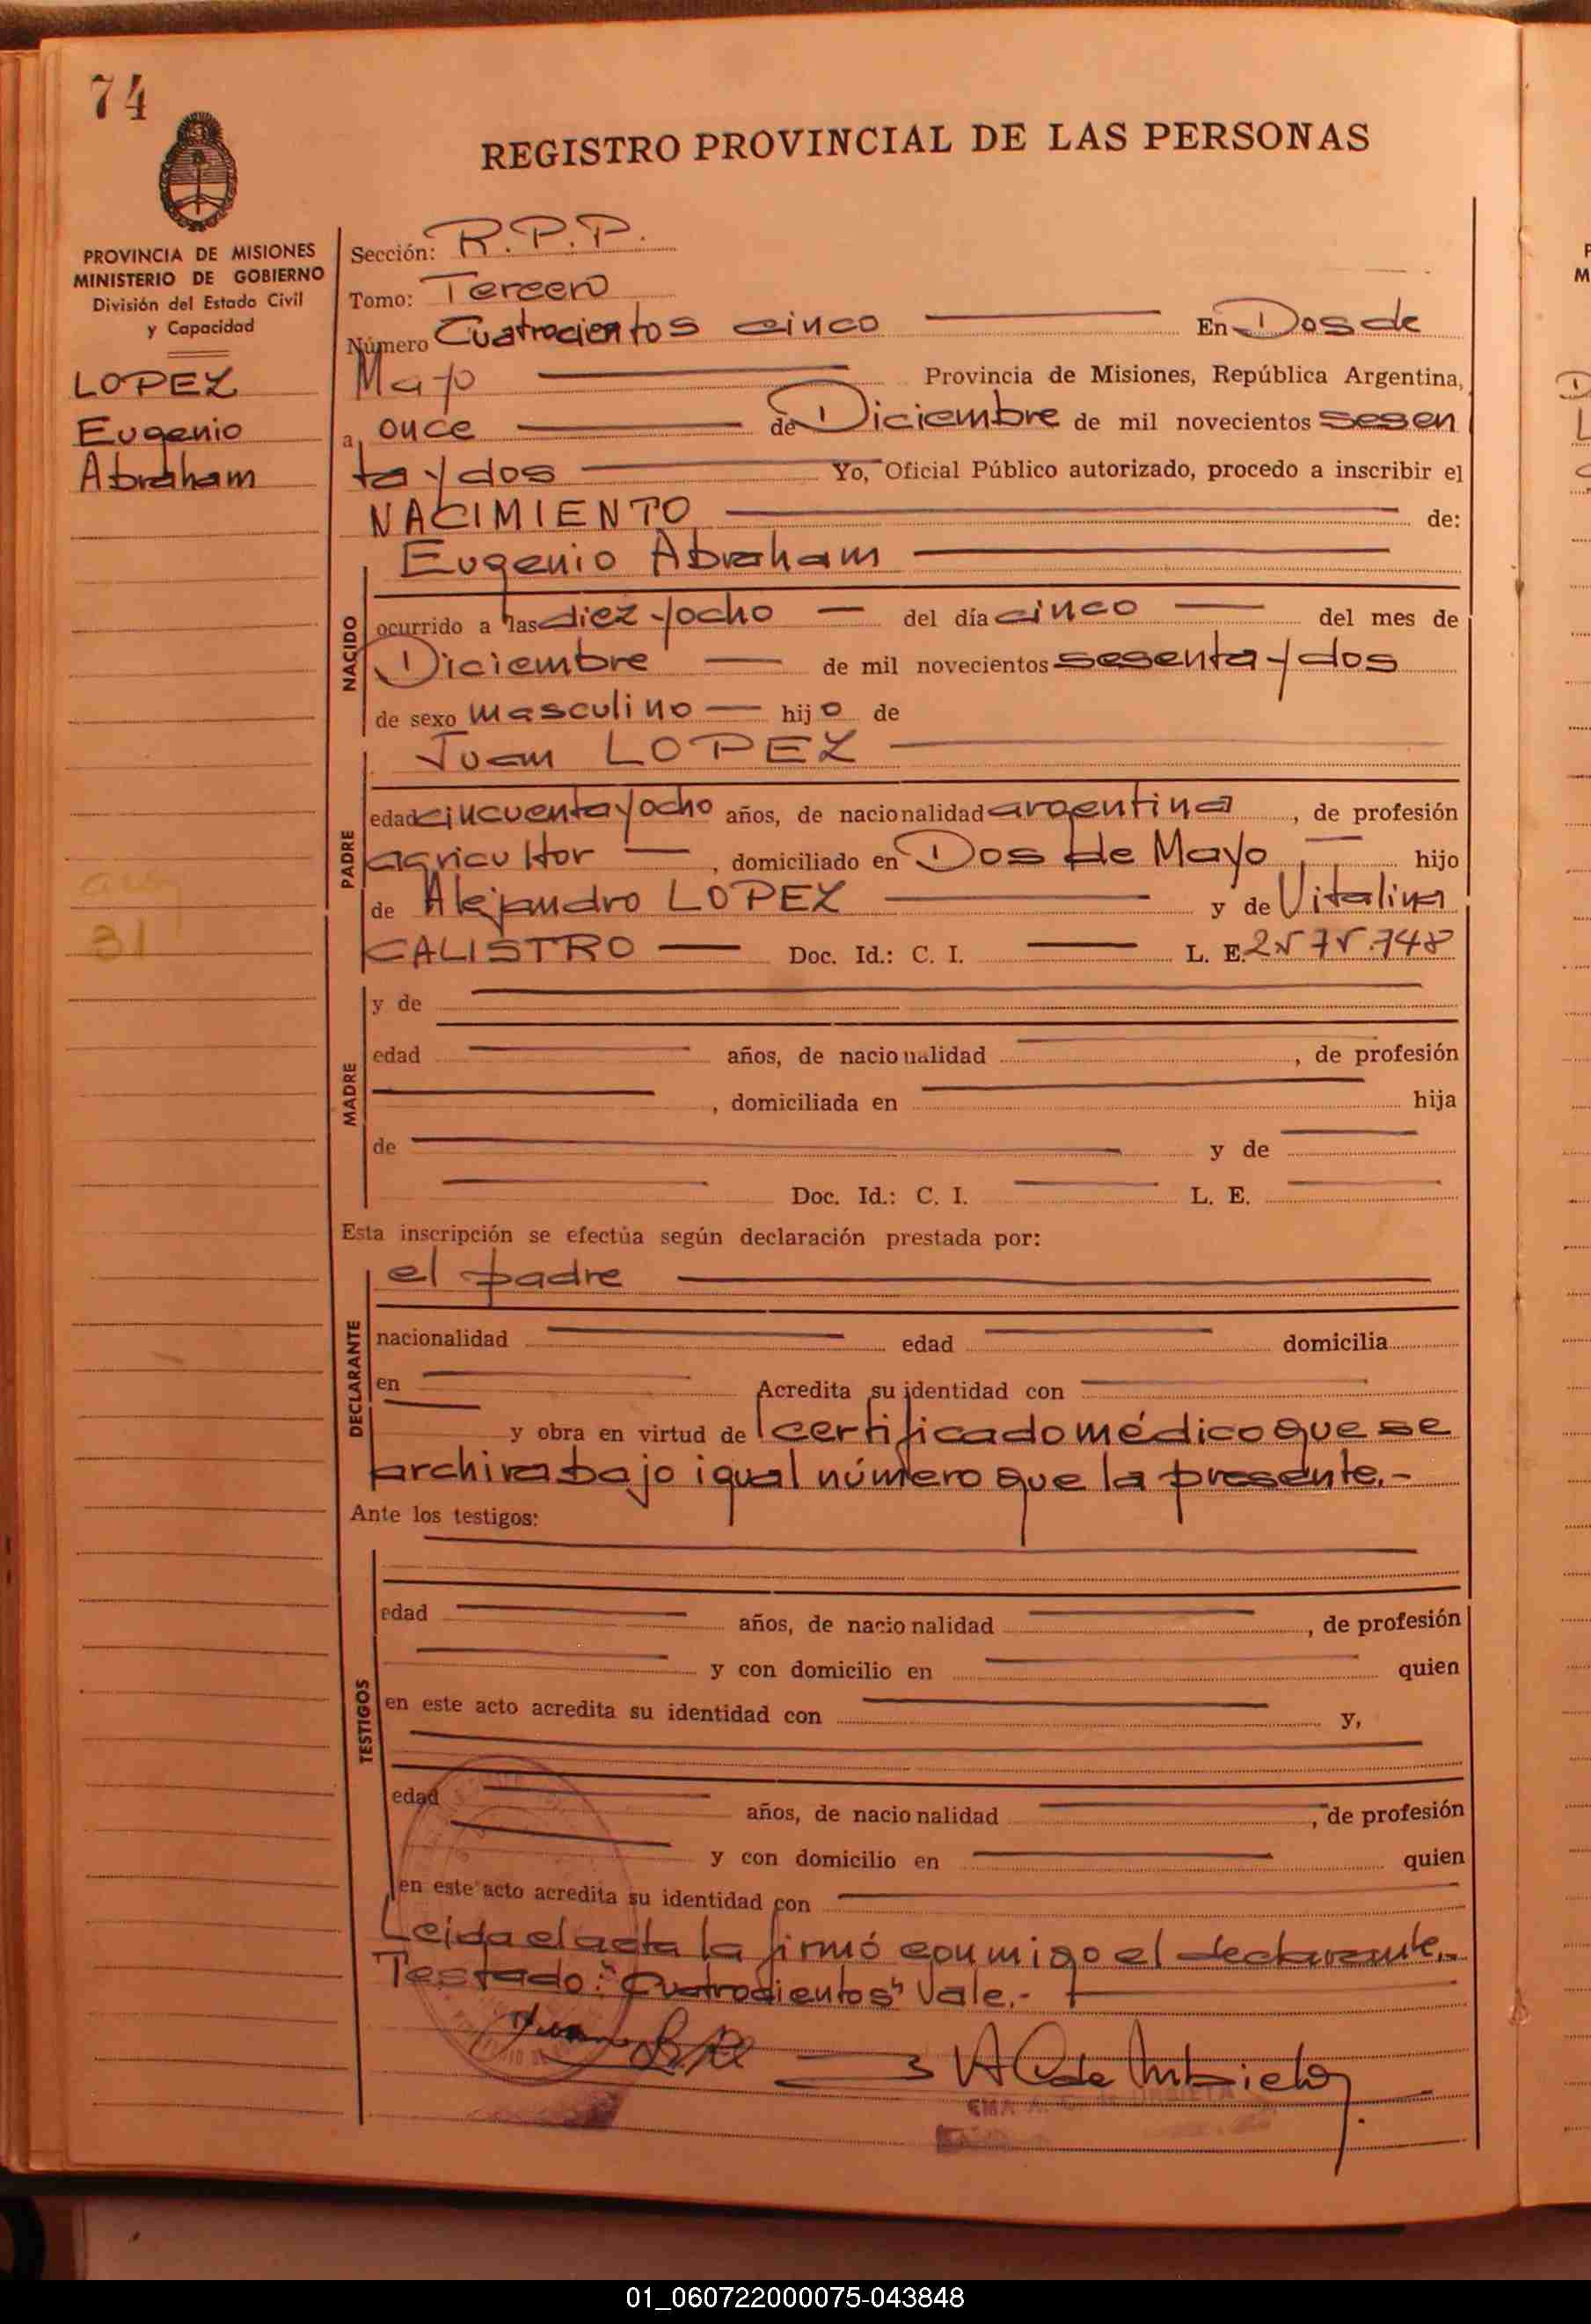 74
REGISTRO PROVINCIAL DE LAS PERSONAS
PROVINCIA DE MISIONES
MINISTERIO DE GOBIERNO
División del Estado Civil
y Capacidad
LOPEZ
Eugenio
Abraham
Sección: R.P.P.
Tomo: Tercero
Número Cuatrocientos cinco En Dos de
Mayo Provincia de Misiones, República Argentina,
a once de Diciembre de mil novecientos sesen
ta y dos Yo, Oficial Público autorizado, procedo a inscribir el
NACIMIENTO de:
Eugenio Abraham
NACIDO
ocurrido a las diez y ocho del día cinco del mes de
Diciembre de mil novecientos sesenta y dos
de sexo masculino hijo de
Juan LOPEZ
PADRE
edad cincuenta y ocho años, de nacionalidad argentina, de profesión
agricultor, domiciliado en Dos de Mayo, hijo
de Alejandro LOPEZ y de Vitalina
CALISTRO Doc. Id.: C. I. L. E. 2575.748
MADRE
y de
edad años, de nacionalidad , de profesión
, domiciliada en hija
de y de
Doc. Id.: C. I. L. E.
Esta inscripción se efectúa según declaración prestada por:
el padre
DECLARANTE
nacionalidad edad domicilia
en Acredita su identidad con
y obra en virtud de certificado médico que se
archiva bajo igual número que la presente.-
Ante los testigos:
TESTIGOS
edad años, de nacionalidad , de profesión
y con domicilio en quien
en este acto acredita su identidad con y,
edad años, de nacionalidad , de profesión
y con domicilio en quien
en este acto acredita su identidad con
Leída el acta la firmó conmigo el declarante.-
Testado: "Cuatrocientos" Vale.-
01_060722000075-043848